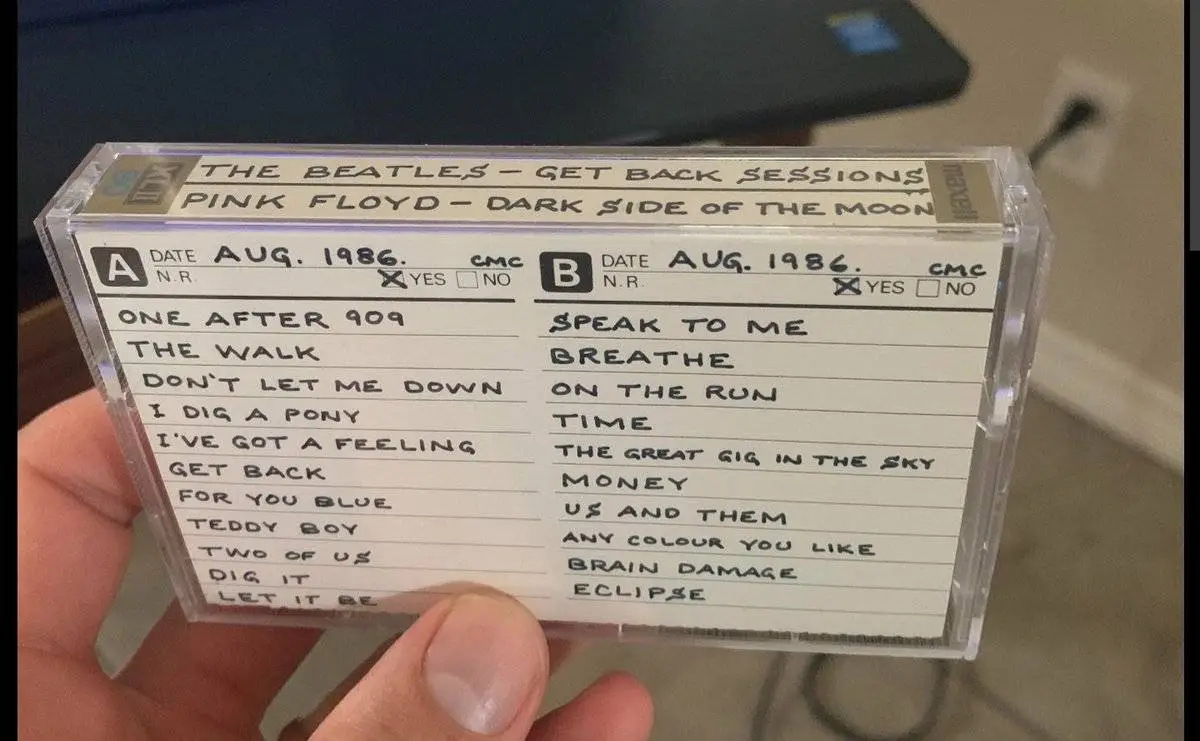 THE BEATLES - GET BACK SESSIONS
PINK FLOYD - DARK SIDE OF THE MOON
maxell
A DATE AUG. 1986. CMC
N.R. YES NO
ONE AFTER 909
THE WALK
DON'T LET ME DOWN
I DIG A PONY
I'VE GOT A FEELING
GET BACK
FOR YOU BLUE
TEDDY BOY
TWO OF US
DIG IT
LET IT BE
B DATE AUG. 1986. CMC
N.R. YES NO
SPEAK TO ME
BREATHE
ON THE RUN
TIME
THE GREAT GIG IN THE SKY
MONEY
US AND THEM
ANY COLOUR YOU LIKE
BRAIN DAMAGE
ECLIPSE